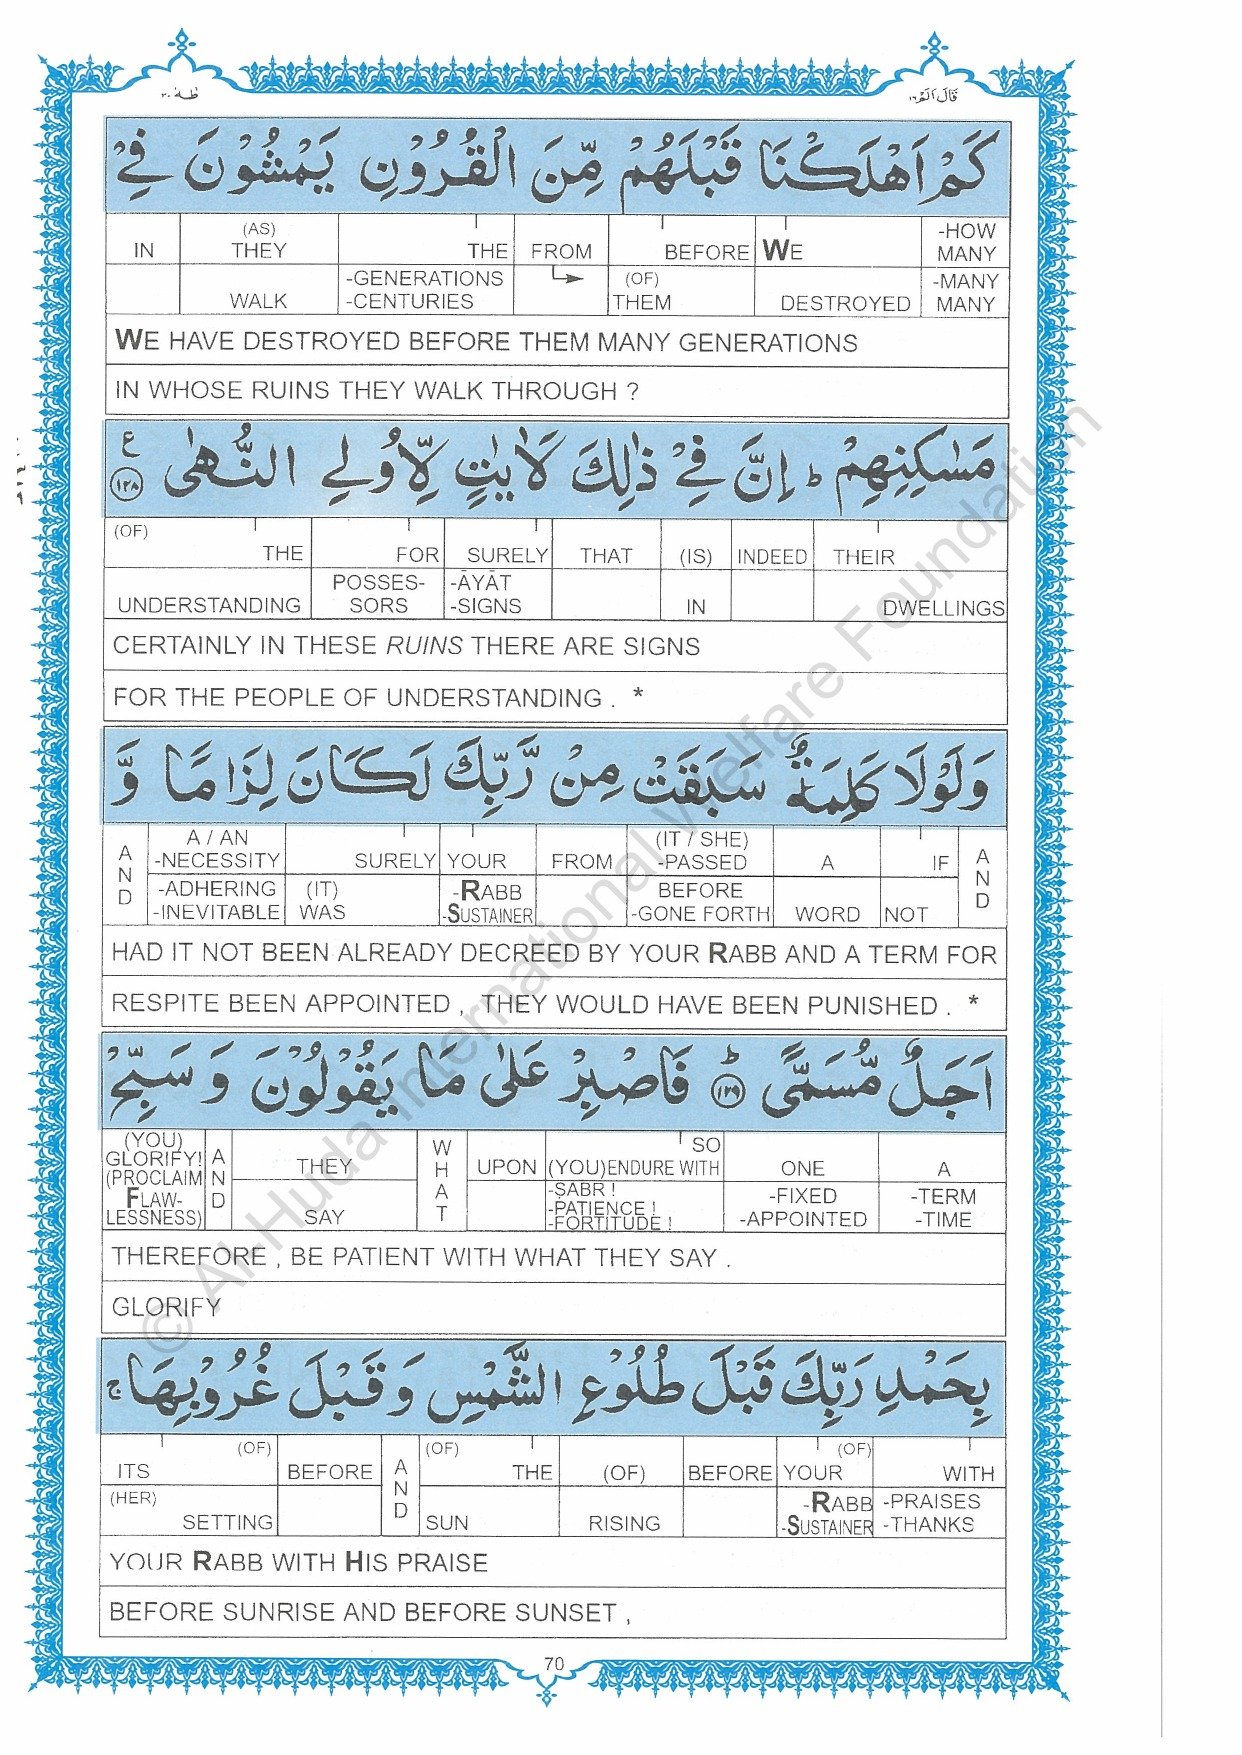 طٰهٰ ٢٠
قَالَ اَلَمْ ١٦
كَمْ اَهْلَكْنَا قَبْلَهُمْ مِّنَ الْقُرُوْنِ يَمْشُوْنَ فِيْ
IN (AS) THEY THE FROM BEFORE WE -HOW MANY
WALK -GENERATIONS -CENTURIES (OF) THEM DESTROYED -MANY MANY
WE HAVE DESTROYED BEFORE THEM MANY GENERATIONS
IN WHOSE RUINS THEY WALK THROUGH ?
مَسٰكِنِهِمْ ؕ اِنَّ فِيْ ذٰلِكَ لَاٰيٰتٍ لِّاُولِي النُّهٰى ﴿١٢٨﴾ ع
(OF) THE FOR SURELY THAT (IS) INDEED THEIR
UNDERSTANDING POSSES- SORS -ĀYĀT -SIGNS IN DWELLINGS
CERTAINLY IN THESE RUINS THERE ARE SIGNS
FOR THE PEOPLE OF UNDERSTANDING . *
وَلَوْلَا كَلِمَةٌ سَبَقَتْ مِنْ رَّبِّكَ لَكَانَ لِزَامًا وَّ
AND A / AN -NECESSITY SURELY YOUR FROM (IT / SHE) -PASSED A IF AND
-ADHERING -INEVITABLE (IT) WAS -RABB -SUSTAINER BEFORE -GONE FORTH WORD NOT
HAD IT NOT BEEN ALREADY DECREED BY YOUR RABB AND A TERM FOR
RESPITE BEEN APPOINTED , THEY WOULD HAVE BEEN PUNISHED . *
اَجَلٌ مُّسَمًّى ؕ ﴿١٢٩﴾ فَاصْبِرْ عَلٰى مَا يَقُوْلُوْنَ وَ سَبِّحْ
(YOU) GLORIFY! (PROCLAIM FLAW- LESSNESS) AND THEY WHAT UPON SO (YOU)ENDURE WITH ONE A
SAY -SABR ! -PATIENCE ! -FORTITUDE ! -FIXED -APPOINTED -TERM -TIME
THEREFORE , BE PATIENT WITH WHAT THEY SAY .
GLORIFY
بِحَمْدِ رَبِّكَ قَبْلَ طُلُوْعِ الشَّمْسِ وَ قَبْلَ غُرُوْبِهَا ۚ
ITS (OF) BEFORE AND (OF) THE (OF) BEFORE YOUR (OF) WITH
(HER) SETTING SUN RISING -RABB -SUSTAINER -PRAISES -THANKS
YOUR RABB WITH HIS PRAISE
BEFORE SUNRISE AND BEFORE SUNSET ,
70
© Al-Huda International Welfare Foundation